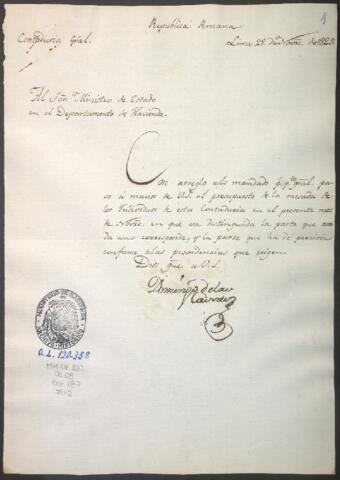 1
Republica Peruana
Contaduria Gral.
Lima 29 de Nobre de 1825
Al Sõr. Ministro de Estado
en el Departamento de Hacienda.
Con arreglo a lo mandado pr pto gral. pa-
so á manos de V.S. el presupuesto de la mesada de
los Individuos de esta Contaduria en el presente mes
de Nobre, en que va distinguida la parte que á ca-
da uno corresponde, y la parte que ha de percivir
conforme alas providencias que rigen.
Dios gue. a V.S.
Domingo de las
O.L. 120-358